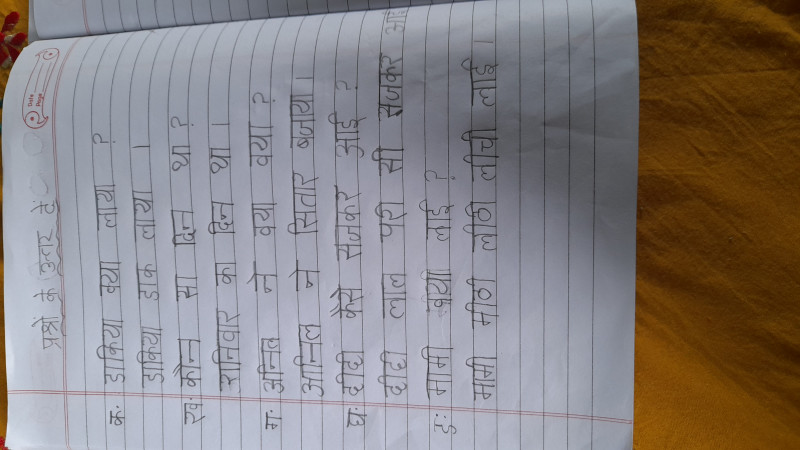 Date
Page
प्रश्नों के उत्तर दें
क: डाकिया क्या लाया ?
डाकिया डाक लाया ।
ख: कौन सा दिन था ?
शनिवार का दिन था ।
ग: अनिल ने क्या क्या ?
अनिल ने सितार बजाया ।
घ: दीदी कैसे सजकर आई ?
दीदी लाल परी सी सजकर आई
ङ: मामी क्या लाई ?
मामी मीठी लीची लाई ।